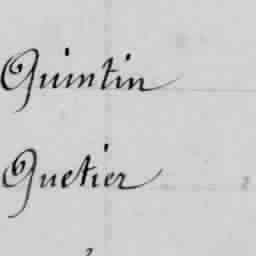 Quintin
Quetier